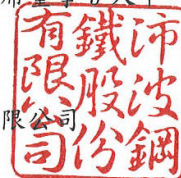 沛波鋼
鐵股份
有限公司
限公司